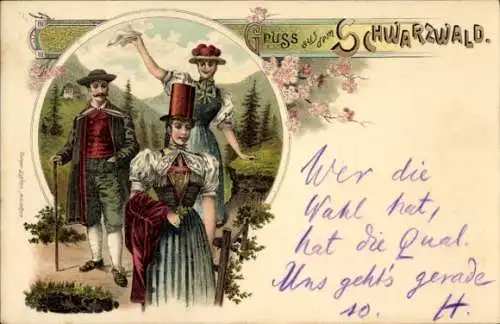 Gruss aus dem Schwarzwald.
Wer die
Wahl hat,
hat die Qual.
Uns geht's gerade
so. H.